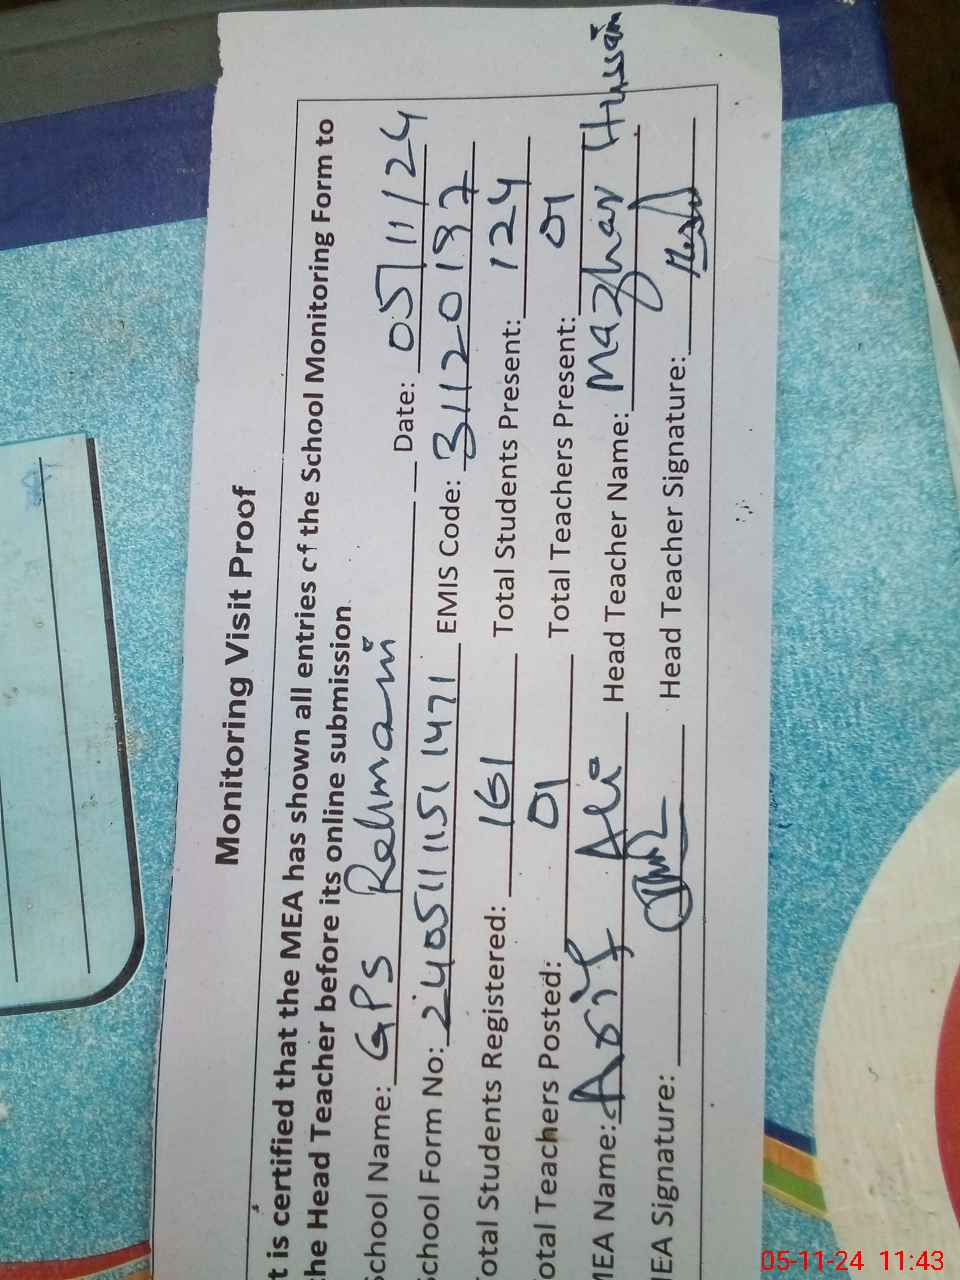 Monitoring Visit Proof
t is certified that the MEA has shown all entries of the School Monitoring Form to
the Head Teacher before its online submission.
School Name: GPS Rehmani Date: 05/11/24
School Form No: 24051115 1471 EMIS Code: 31120197
Total Students Registered: 161 Total Students Present: 124
Total Teachers Posted: 01 Total Teachers Present: 01
MEA Name: Asif Ali Head Teacher Name: Mazhar Hussain
MEA Signature: Head Teacher Signature:
05-11-24 11:43